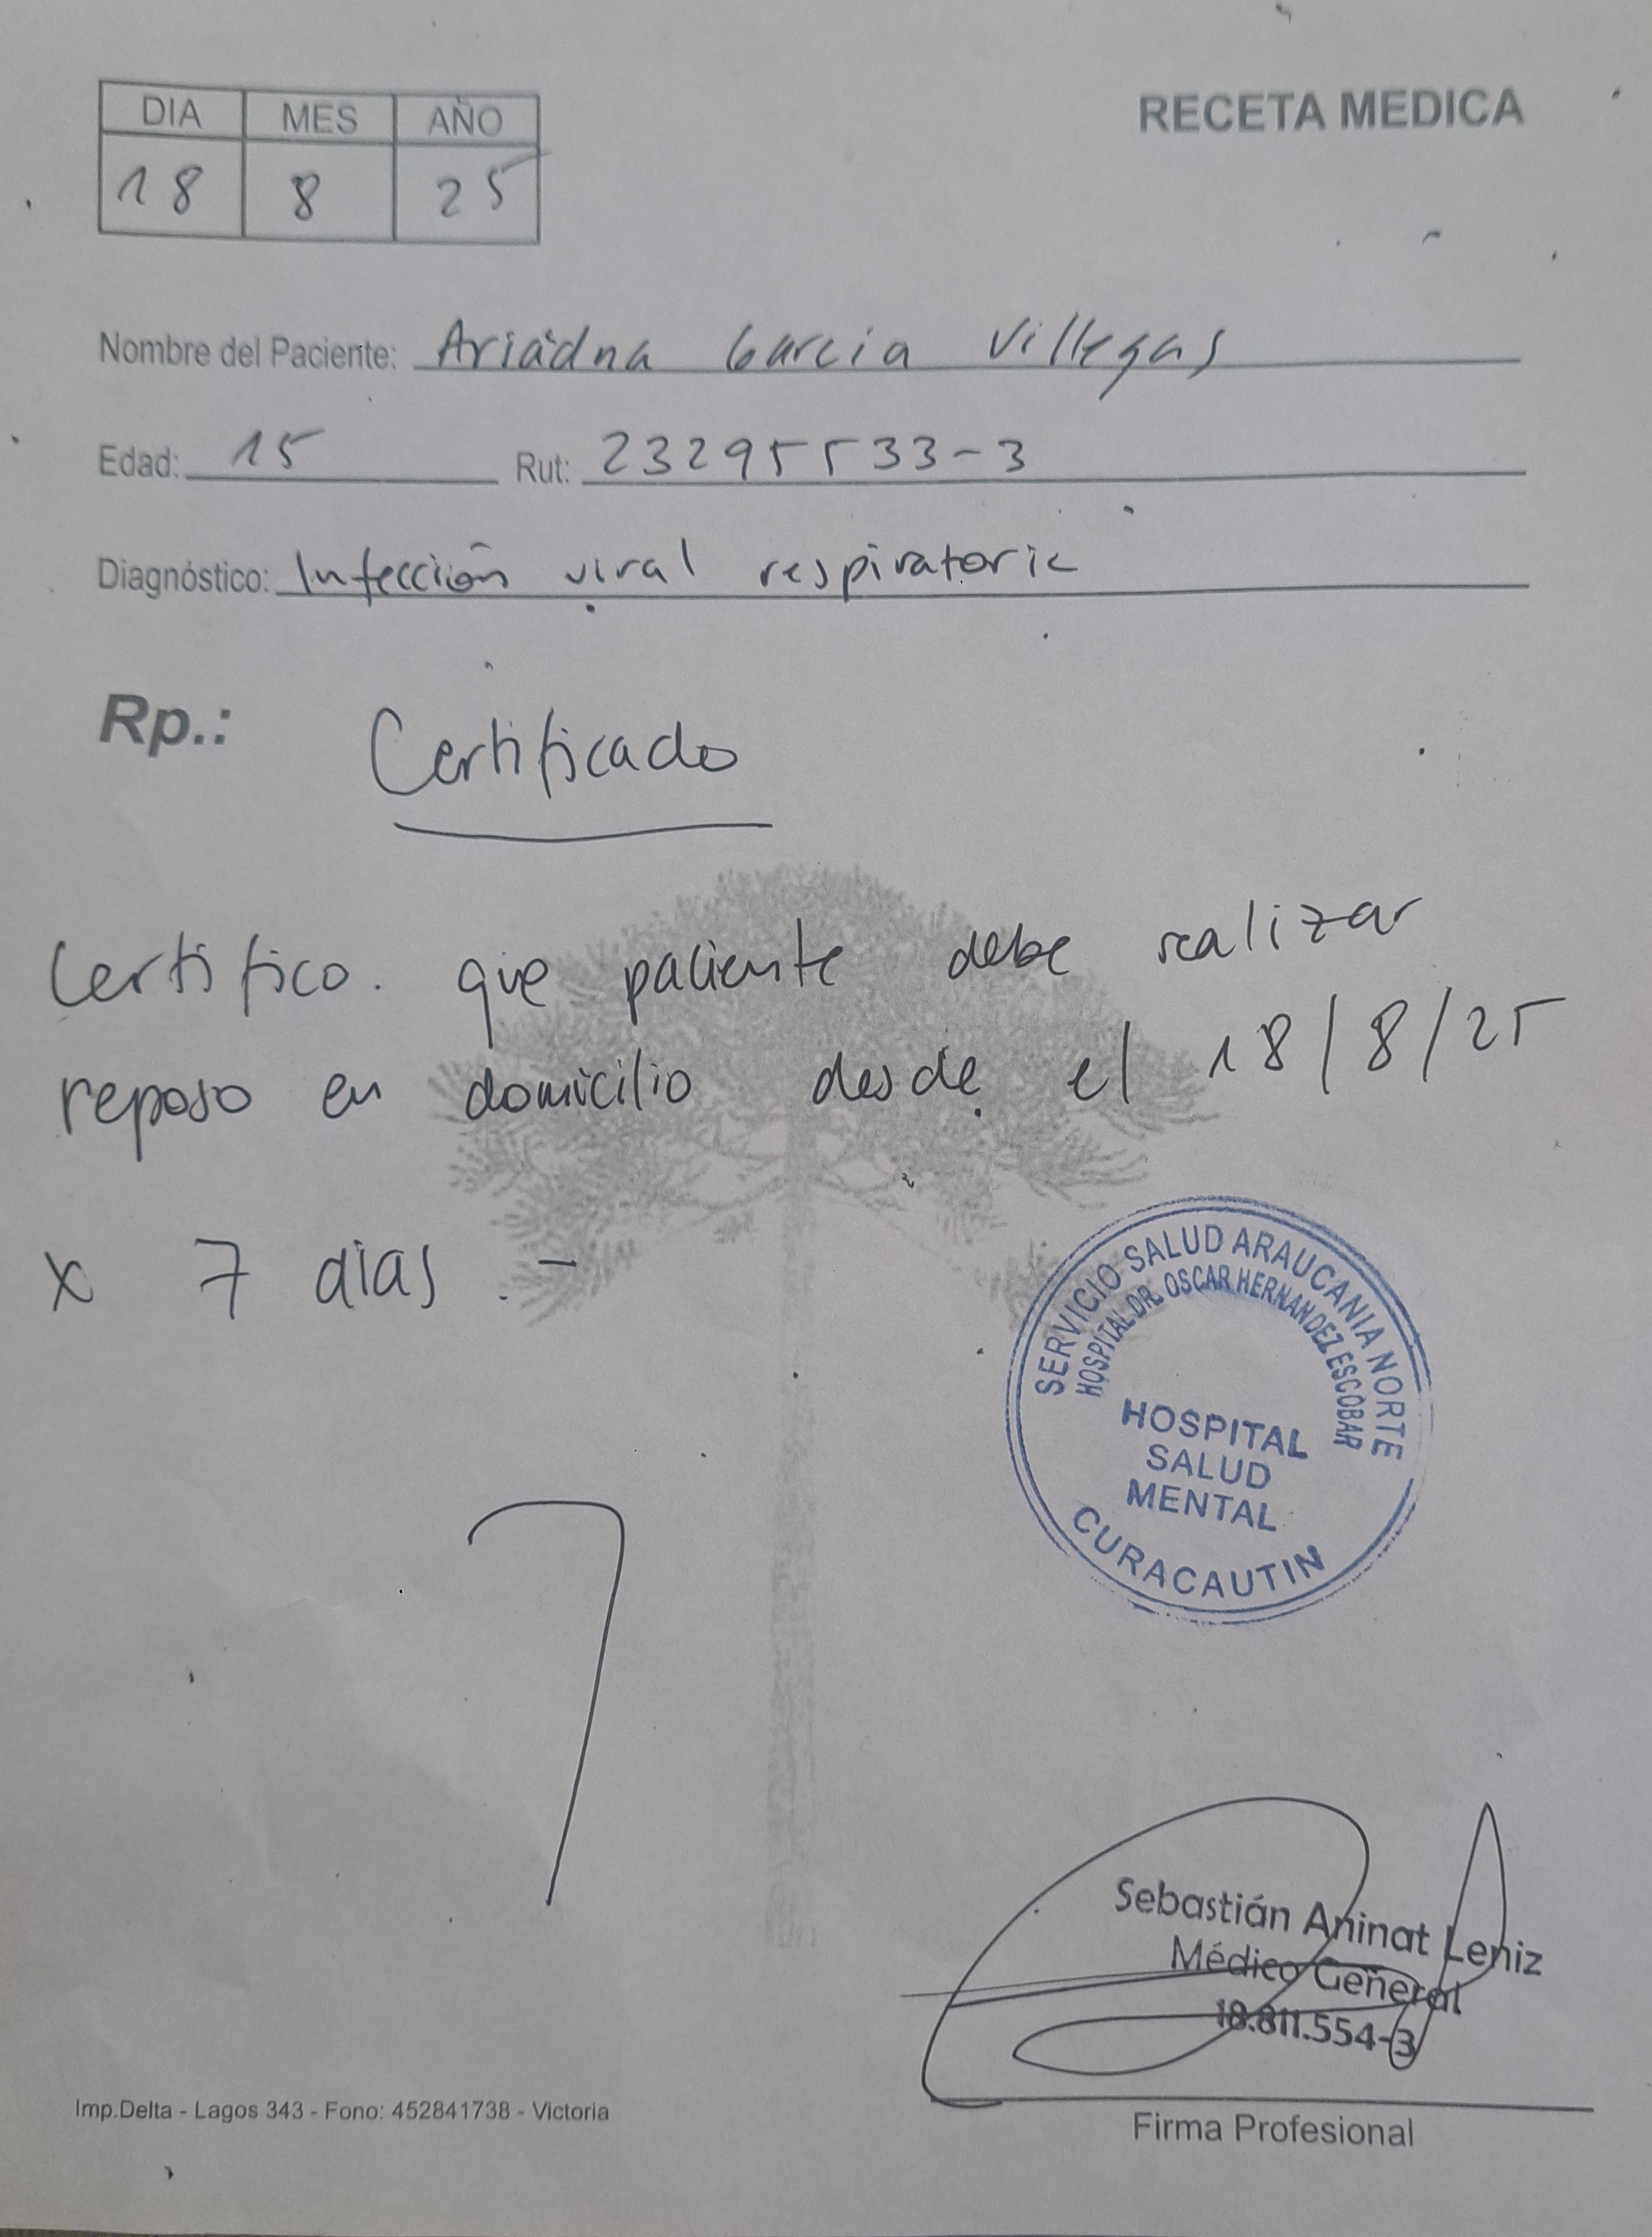 DIA MES AÑO
18 8 25
RECETA MEDICA
Nombre del Paciente: Ariadna Garcia Villegas
Edad: 15 Rut: 23295533-3
Diagnóstico: Infección viral respiratoria
Rp.: Certificado
Certifico. que paciente debe realizar
reposo en domicilio desde el 18/8/25
x 7 dias . -
SERVICIO SALUD ARAUCANIA NORTE
HOSPITAL DR. OSCAR HERNANDEZ ESCOBAR
HOSPITAL
SALUD
MENTAL
CURACAUTIN
Sebastián Aninat Leniz
Médico General
18.811.554-3
Firma Profesional
Imp.Delta - Lagos 343 - Fono: 452841738 - Victoria